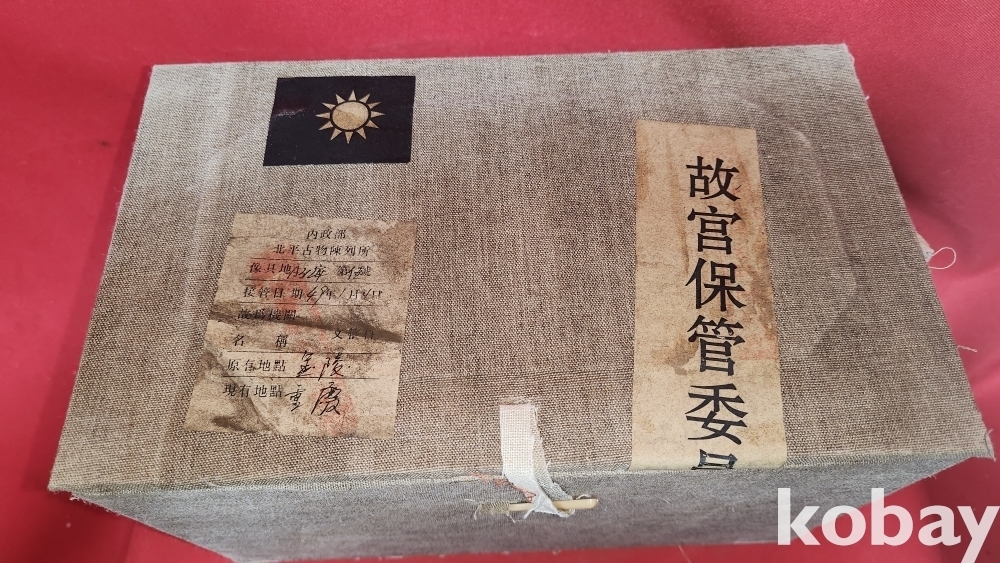 內政部
北平古物陳列所
傢具地 第 號
接管日期 49年1月31日
機關
名稱
原存地點 金陵
現有地點 重慶
故宮保管委員
kobay